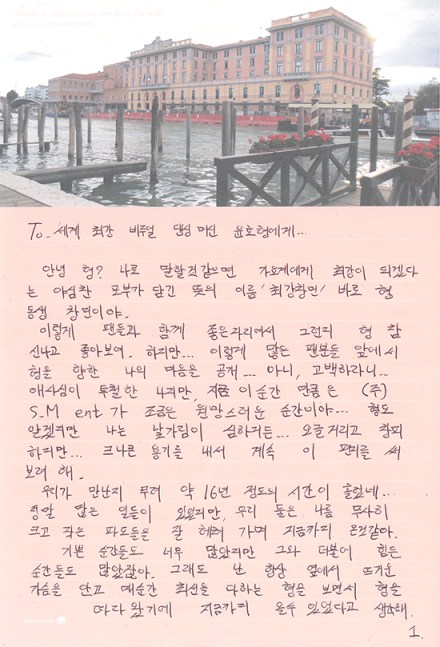 To. 세계 최강 비쥬얼 댄싱 머신 윤호형에게...
안녕 형? 나로 말할것같으면 가요계에게 최강이 되겠다
는 야심찬 포부가 담긴 뜻의 이름 '최강창민' 바로 형
동생 창민이야.
이렇게 팬들과 함께 좋은자리에서 그런지 형 참
신나고 좋아보여. 하지만... 이렇게 많은 팬분들 앞에서
형을 향한 나의 마음은 공개... 아니, 고백하라니..
애사심이 투철한 나지만, 지금 이 순간 만큼은 (주)
S.M ent가 조금은 원망스러운 순간이야... 형도
알겠지만 나는 낯가림이 심하거든... 오글거리고 창피
하지만... 크나큰 용기를 내서 계속 이 편지를 써
보려 해.
우리가 만난지 무려 약 16년 정도의 시간이 흘렀네...
정말 많은 일들이 있었지만, 우리 둘은 나름 무사히
크고 작은 파도들을 잘 헤쳐 가며 지금까지 온것같아.
기쁜 순간들도 너무 많았지만 그와 더불어 힘든
순간들도 많았잖아. 그래도 난 항상 옆에서 뜨거운
가슴을 안고 매순간 최선을 다하는 형을 보면서 형을
따라 왔기에 지금까지 올수 있었다고 생각해.
1.